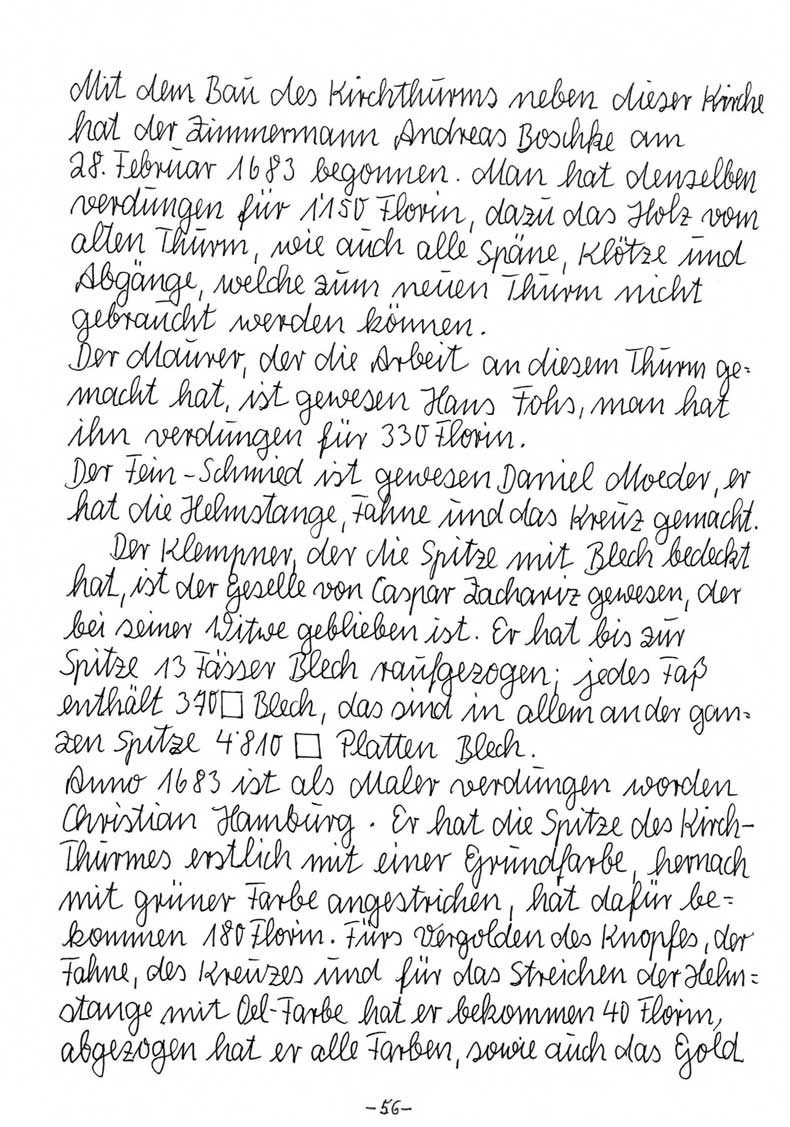 Mit dem Bau des Kirchthurms neben dieser Kirche
hat der Zimmermann Andreas Boschke am
28. Februar 1683 begonnen. Man hat denselben
verdungen für 1'150 Florin, dazu das Holz vom
alten Thurm, wie auch alle Späne, Klötze und
Abgänge, welche zum neuen Thurm nicht
gebraucht werden können.
Der Maurer, der die Arbeit an diesem Thurm ge=
macht hat, ist gewesen Hans Fohs, man hat
ihn verdungen für 330 Florin.
Der Fein-Schmied ist gewesen Daniel Moeder, er
hat die Helmstange, Fahne und das Kreuz gemacht.
Der Klempner, der die Spitze mit Blech bedeckt
hat, ist der Geselle von Caspar Zachariz gewesen, der
bei seiner Witwe geblieben ist. Er hat bis zur
Spitze 13 Fässer Blech raufgezogen; jedes Faß
enthält 370□ Blech, das sind in allem an der gan=
zen Spitze 4'810 □ Platten Blech.
Anno 1683 ist als Maler verdungen worden
Christian Hamburg. Er hat die Spitze des Kirch-
Thurmes erstlich mit einer Grundfarbe, hernach
mit grüner Farbe angestrichen, hat dafür be=
kommen 180 Florin. Fürs Vergolden des Knopfes, der
Fahne, des Kreuzes und für das Streichen der Helm=
stange mit Oel-Farbe hat er bekommen 40 Florin,
abgezogen hat er alle Farben, sowie auch das Gold
-56-